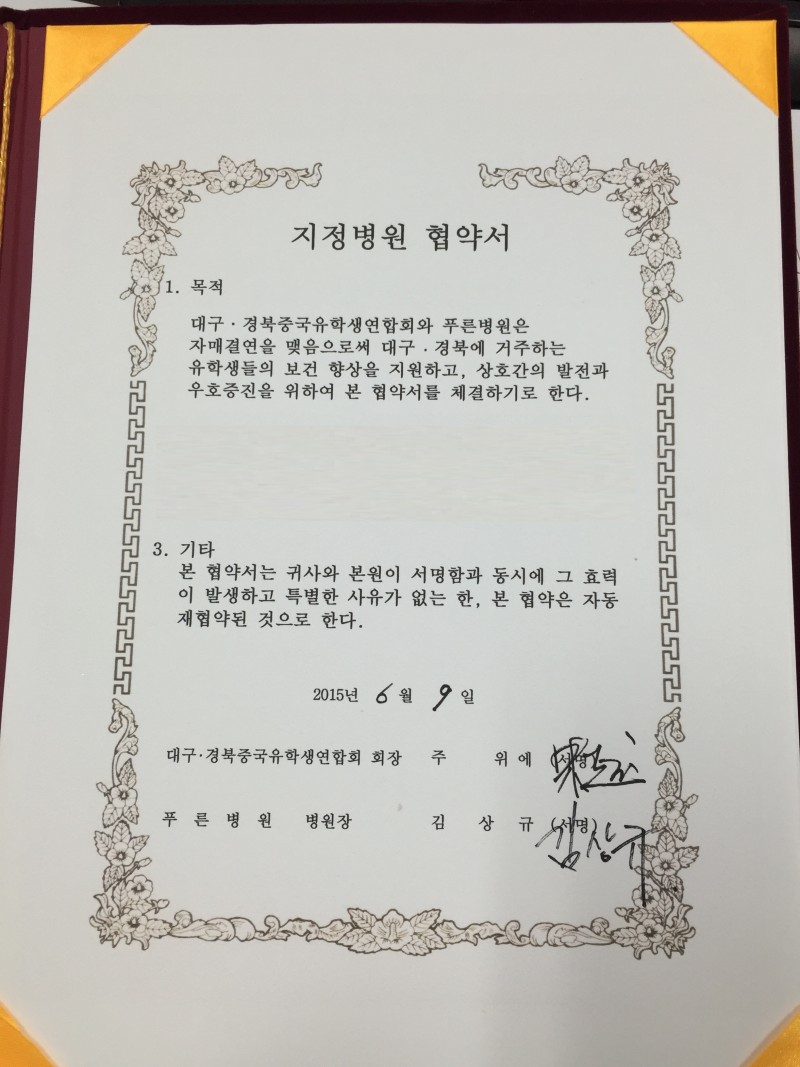 지정병원 협약서
1. 목적
대구 · 경북중국유학생연합회와 푸른병원은
자매결연을 맺음으로써 대구 · 경북에 거주하는
유학생들의 보건 향상을 지원하고, 상호간의 발전과
우호증진을 위하여 본 협약서를 체결하기로 한다.
3. 기타
본 협약서는 귀사와 본원이 서명함과 동시에 그 효력
이 발생하고 특별한 사유가 없는 한, 본 협약은 자동
재협약된 것으로 한다.
2015년 6 월 9 일
대구·경북중국유학생연합회 회장 주 위 에 (서명)
푸 른 병 원 병원장 김 상 규 (서명)
김상규